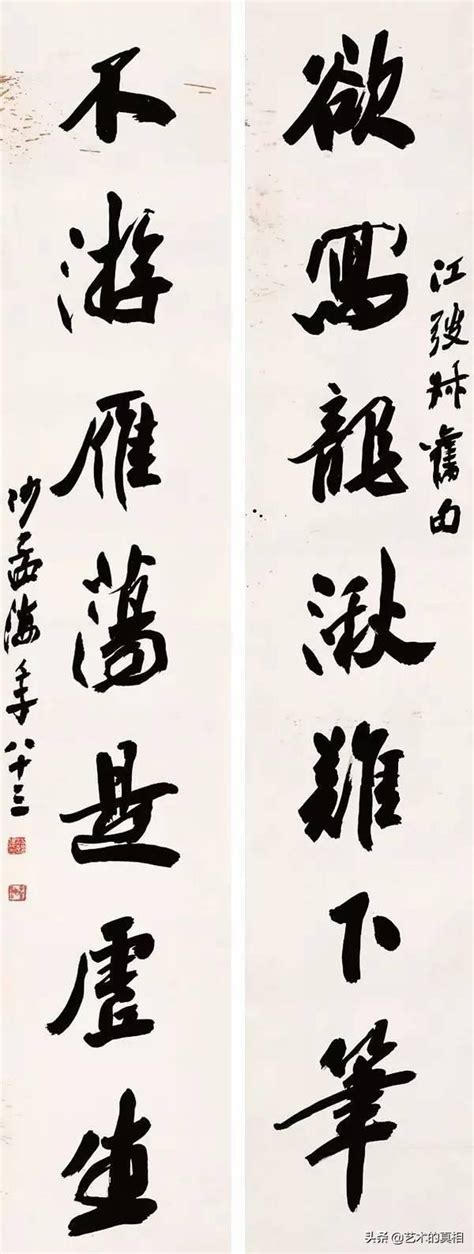 欲寫龍湫難下筆
江弢叔舊句
不游雁蕩是虛生
沙孟海年八十三
头条 @艺术的真相